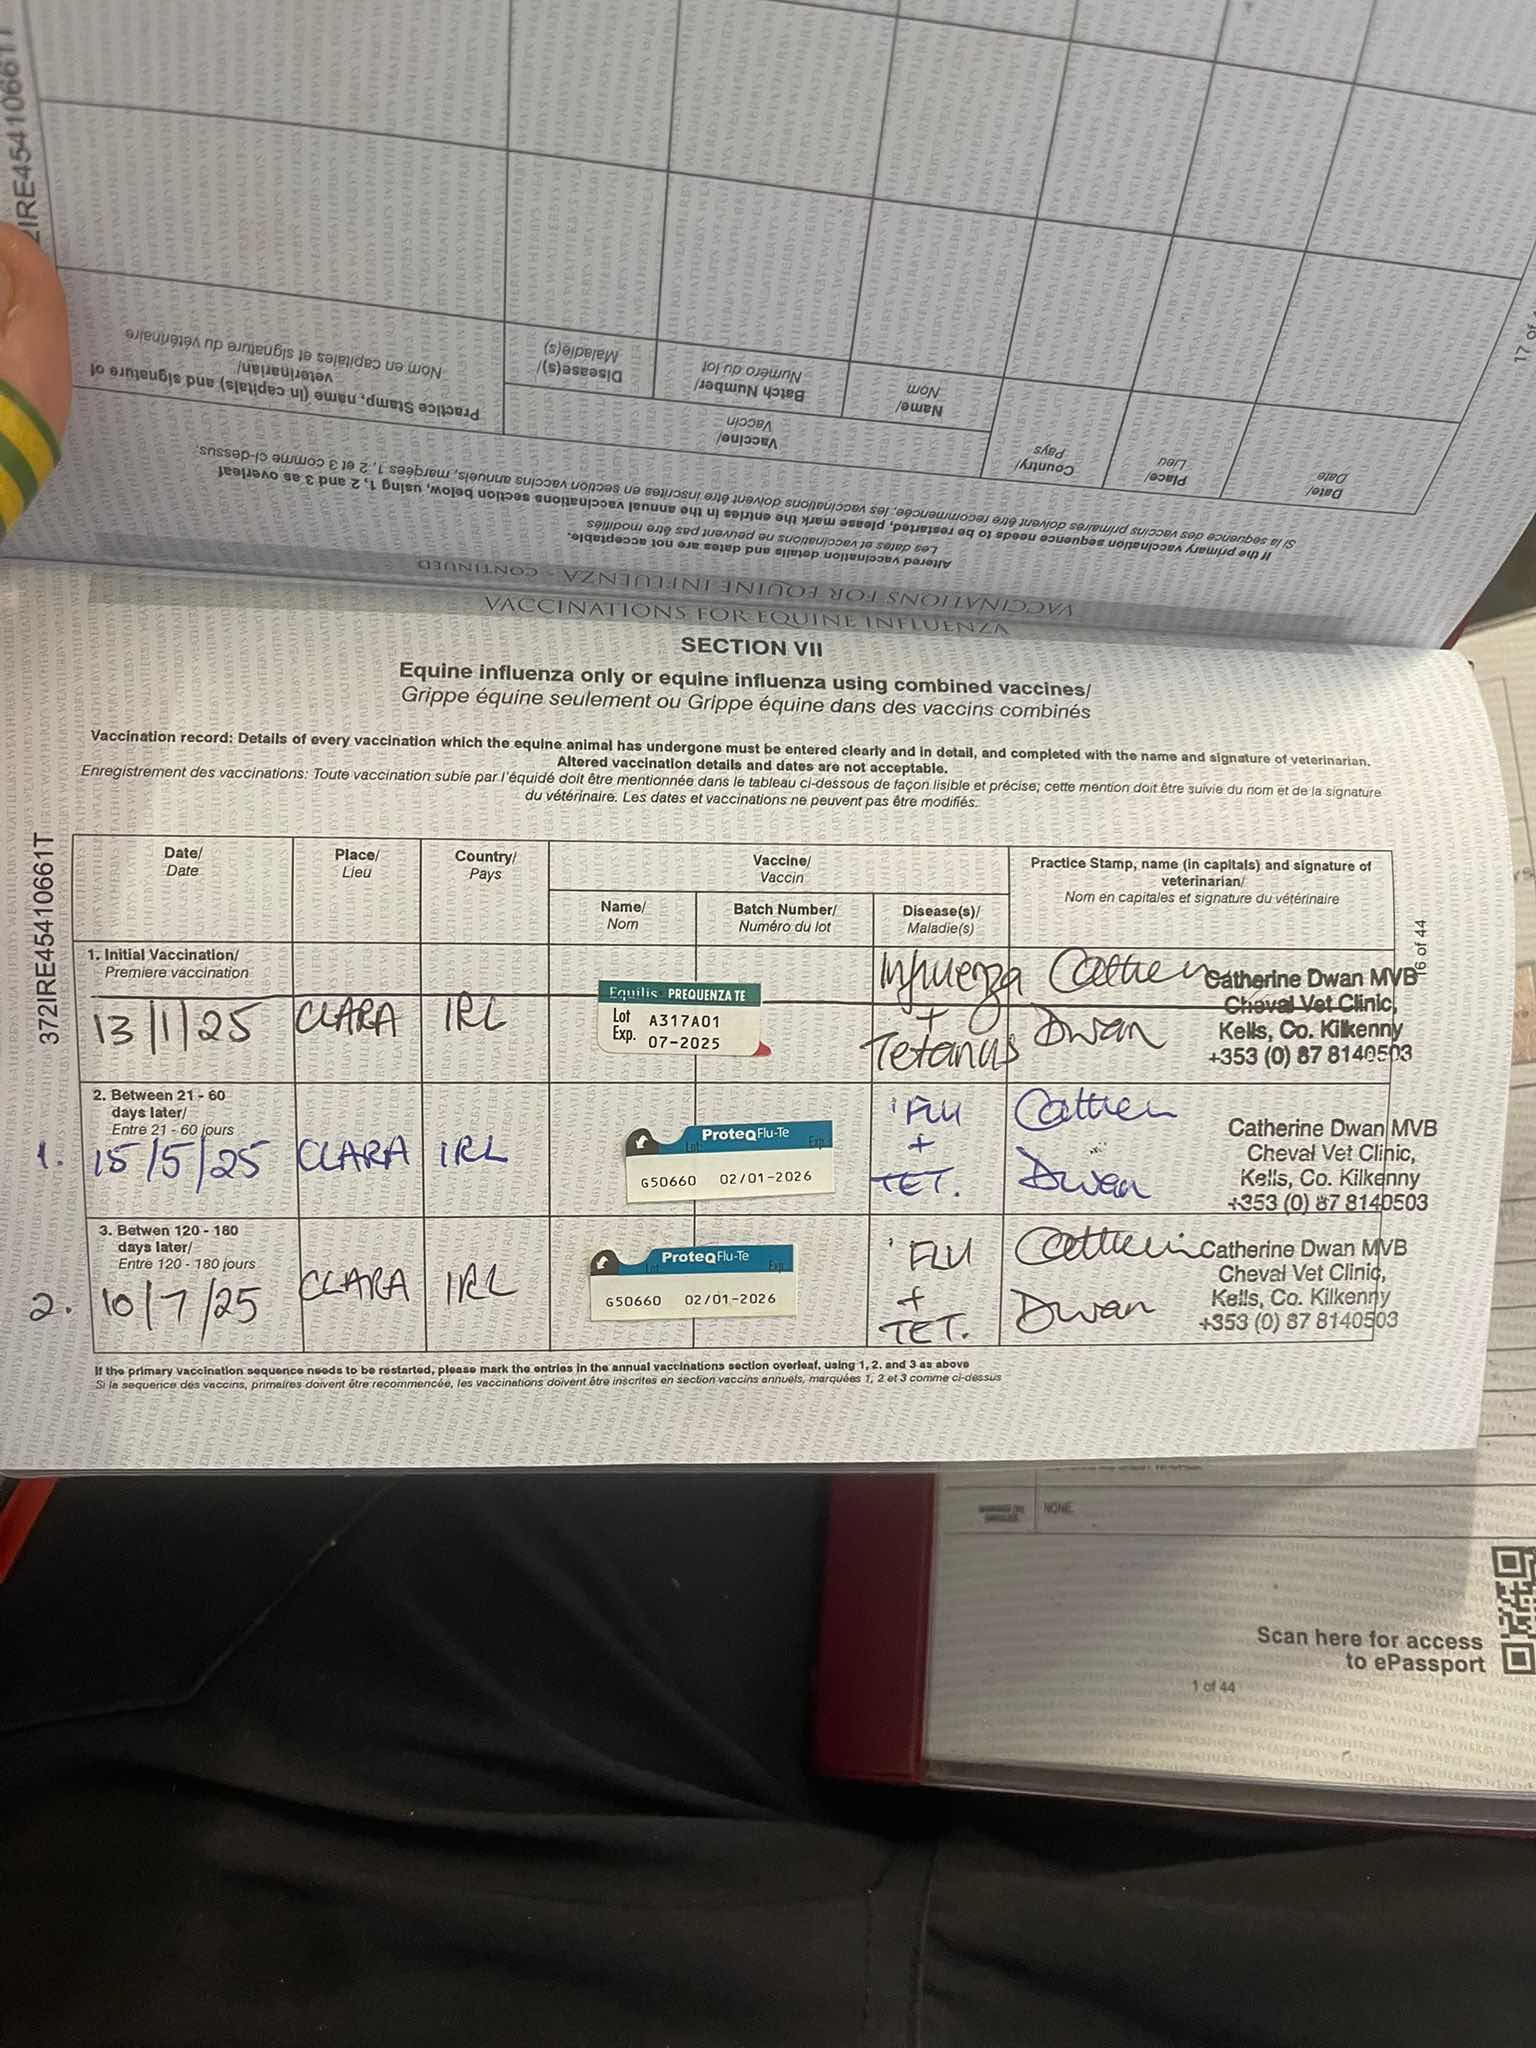 Practice Stamp, name (in capitals) and signature of
veterinarian/
Nom en capitales et signature du vétérinaire
Disease(s)/
Maladie(s)
Batch Number/
Numéro du lot
Name/
Nom
Vaccine/
Vaccin
Country/
Pays
Place/
Lieu
Date/
Date
17 of
If the primary vaccination sequence needs to be restarted, please mark the entries in the annual vaccinations section below, using 1, 2 and 3 as overleaf
Si la sequence des vaccins primaires doivent être recommencée, les vaccinations doivent être inscrites en section vaccins annuels, marquées 1, 2 et 3 comme ci-dessus.
Altered vaccination details and dates are not acceptable.
Les dates et vaccinations ne peuvent pas être modifiés
VACCINATIONS FOR EQUINE INFLUENZA - CONTINUED
VACCINATIONS FOR EQUINE INFLUENZA
SECTION VII
Equine influenza only or equine influenza using combined vaccines/
Grippe équine seulement ou Grippe équine dans des vaccins combinés
Vaccination record: Details of every vaccination which the equine animal has undergone must be entered clearly and in detail, and completed with the name and signature of veterinarian.
Altered vaccination details and dates are not acceptable.
Enregistrement des vaccinations: Toute vaccination subie par l'équidé doit être mentionnée dans le tableau ci-dessous de façon lisible et précise; cette mention doit être suivie du nom et de la signature
du vétérinaire. Les dates et vaccinations ne peuvent pas être modifiés.
372IRE45410661T
Date/
Date
Place/
Lieu
Country/
Pays
Vaccine/
Vaccin
Name/
Nom
Batch Number/
Numéro du lot
Disease(s)/
Maladie(s)
Practice Stamp, name (in capitals) and signature of
veterinarian/
Nom en capitales et signature du vétérinaire
16 of 44
1. Initial Vaccination/
Premiere vaccination
13/1/25 CLARA IRL
Equilis PREQUENZA TE
Lot A317A01
Exp. 07-2025
Influenza
+
Tetanus
Dwan
Catherine Dwan MVB
Cheval Vet Clinic,
Kells, Co. Kilkenny
+353 (0) 87 8140503
2. Between 21 - 60
days later/
Entre 21 - 60 jours
1. 15/5/25 CLARA IRL
ProteqFlu-Te
Lot Exp
G50660 02/01-2026
FLU
+
TET.
Dwan
Catherine Dwan MVB
Cheval Vet Clinic,
Kells, Co. Kilkenny
+353 (0) 87 8140503
3. Betwen 120 - 180
days later/
Entre 120 - 180 jours
2. 10/7/25 CLARA IRL
ProteqFlu-Te
Lot Exp
G50660 02/01-2026
FLU
+
TET.
Dwan
Catherine Dwan MVB
Cheval Vet Clinic,
Kells, Co. Kilkenny
+353 (0) 87 8140503
If the primary vaccination sequence needs to be restarted, please mark the entries in the annual vaccinations section overleaf, using 1, 2. and 3 as above
Si la sequence des vaccins, primaires doivent être recommencée, les vaccinations doivent être inscrites en section vaccins annuels, marquées 1, 2 et 3 comme ci-dessus
NONE.
Scan here for access
to ePassport
1 of 44